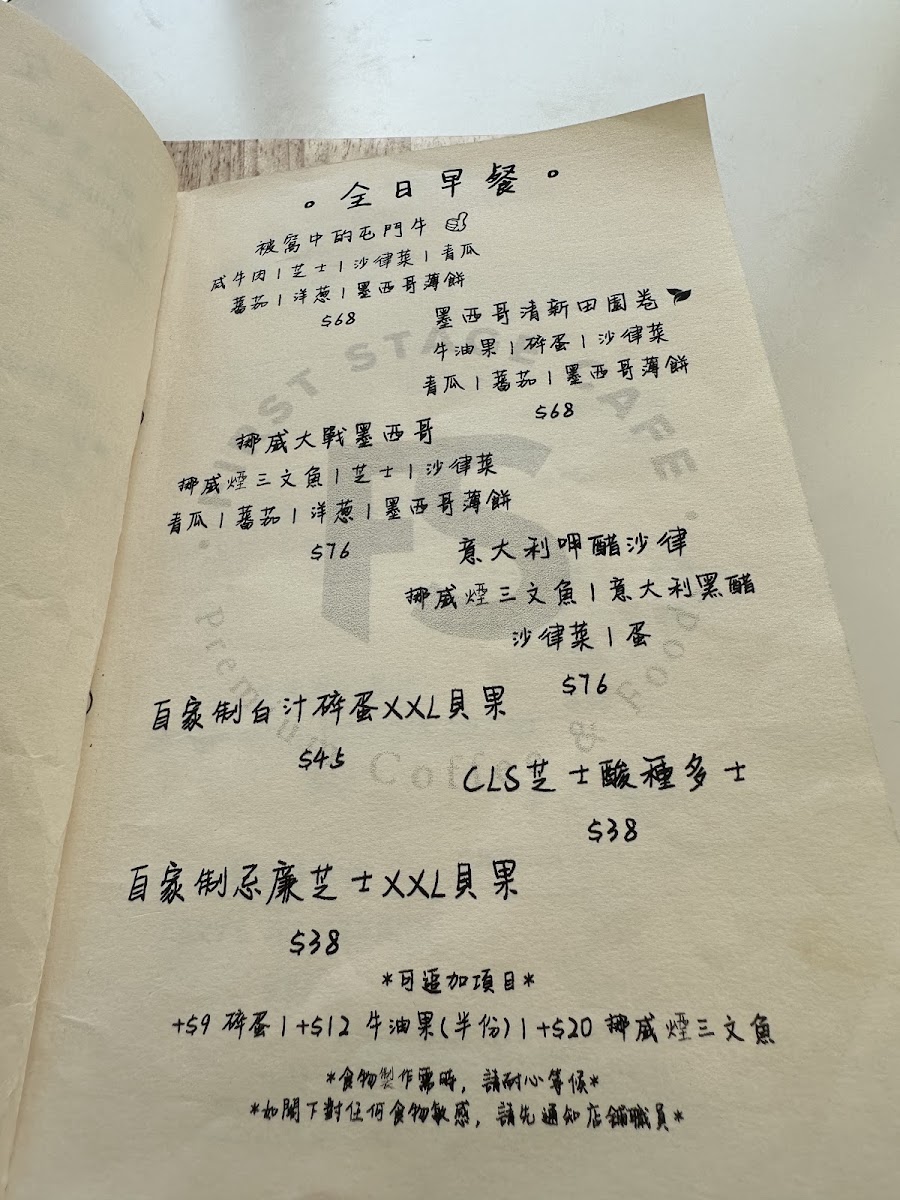 。全日早餐。
被窩中的屯門牛
咸牛肉|芝士|沙律菜|青瓜
蕃茄|洋蔥|墨西哥薄餅
$68
墨西哥清新田園卷
牛油果|碎蛋|沙律菜
青瓜|蕃茄|墨西哥薄餅
$68
挪威大戰墨西哥
挪威煙三文魚|芝士|沙律菜
青瓜|蕃茄|洋蔥|墨西哥薄餅
$76
意大利呷醋沙律
挪威煙三文魚|意大利黑醋
沙律菜|蛋
$76
自家制白汁碎蛋XXL貝果
$45
CLS芝士酸種多士
$38
自家制忌廉芝士XXL貝果
$38
*可追加項目*
+$9 碎蛋|+$12 牛油果(半份)|+$20 挪威煙三文魚
*食物製作需時, 請耐心等候*
*如閣下對任何食物敏感, 請先通知店鋪職員*
FS
Premium Coffee & Food